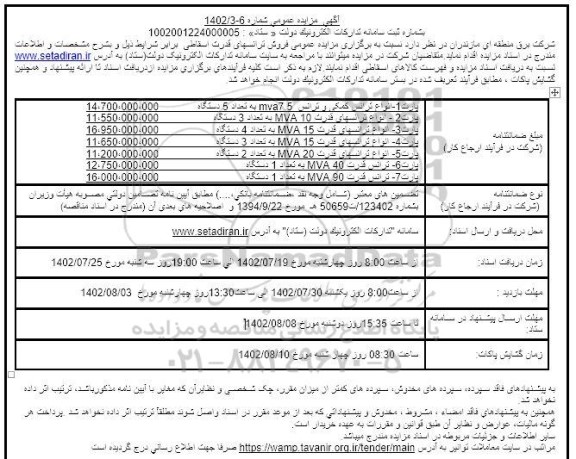 آگهي مزايده عمومي شماره 6-1402/3
بشماره ثبت سامانه تداركات الكترونيك دولت « ستاد» : 1002001224000005
شركت برق منطقه اي مازندران در نظر دارد نسبت به برگزاري مزايده عمومي فروش ترانسهاي قدرت اسقاطي برابر شرايط ذيل و بشرح مشخصات و اطلاعات
مندرج در اسناد مزايده اقدام نمايد.متقاضيان شركت در مزايده ميتوانند با مراجعه به سايت سامانه تداركات الكترونيك دولت(ستاد) به آدرس www.setadiran.ir
نسبت به دريافت اسناد مزايده و فهرست كالاهاي اسقاطي اقدام نمايند لازم به ذكر است كليه فرآيندهاي برگزاري مزايده ازدريافت اسناد تا ارائه پيشنهاد و همچنين
گشايش پاكات ، مطابق فرآيند تعريف شده در بستر سامانه تداركات الكترونيك دولت انجام خواهد شد
مبلغ ضمانتنامه
(شركت در فرآيند ارجاع كار)
پارت1- انواع ترانس كمكي و ترانس mva7.5 به تعداد 5 دستگاه 14-700-000-000
پارت2- انواع ترانسهاي قدرت MVA 10 به تعداد 3 دستگاه 11-550-000-000
پارت3- انواع ترانسهاي قدرت MVA 15 به تعداد 4 دستگاه 16-950-000-000
پارت4- انواع ترانسهاي قدرت MVA 15 به تعداد 3 دستگاه 11-650-000-000
پارت5- انواع ترانسهاي قدرت MVA 20 به تعداد 2 دستگاه 11-200-000-000
پارت6- ترانس قدرت MVA 40 به تعداد 1 دستگاه 12-750-000-000
پارت7- ترانس قدرت MVA 90 به تعداد 1 دستگاه 16-000-000-000
نوع ضمانتنامه
(شركت در فرآيند ارجاع كار)
تضمين هاي معتبر (شامل وجه نقد ،ضمانتنامه بانكي،....) مطابق آيين نامه تضامين دولتي مصوبه هيأت وزيران
بشماره 123402/ت50659 هـ مورخ 1394/9/22 و اصلاحيه هاي بعدي آن (مندرج در اسناد مناقصه)
محل دريافت و ارسال اسناد:
سامانه "تداركات الكترونيك دولت (ستاد)" به آدرس www.setadiran.ir
زمان دريافت اسناد:
از ساعت 8:00 روز چهارشنبه مورخ 1402/07/19 لي ساعت 19:00روز سه شنبه مورخ 1402/07/25
مهلت بازديد :
از ساعت8:00 روز يكشنبه 1402/07/30 لي ساعت13:30روز چهارشنبه مورخ 1402/08/03
مهلت ارسال پيشنهاد در سامانه
ستاد:
تا ساعت 15:35 روز دوشنبه مورخ 1402/08/08
زمان گشايش پاكات:
ساعت 08:30 روز چهار شنبه مورخ 1402/08/10
به پيشنهادهاي فاقد سپرده، سپرده هاي مخدوش، سپرده هاي كمتر از ميزان مقرر، چك شخصي و نظايرآن كه مغاير با آيين نامه مذكورباشد، ترتيب اثر داده
نخواهد شد.
همچنين به پيشنهادهاي فاقد امضاء ، مشروط ، مخدوش و پيشنهاداتي كه بعد از موعد مقرر در اسناد واصل شوند مطلقاً ترتيب اثر داده نخواهد شد .پرداخت هر
گونه ماليات، عوارض و نظاير آن طبق قوانين و مقررات به عهده خريدار است.
ساير اطلاعات و جزئيات مربوطه در اسناد مزايده مندرج ميباشد.
مراتب در سايت معاملات توانير به آدرس https://wamp.tavanir.org.ir/tender/main صرفا جهت اطلاع رساني درج گرديده است